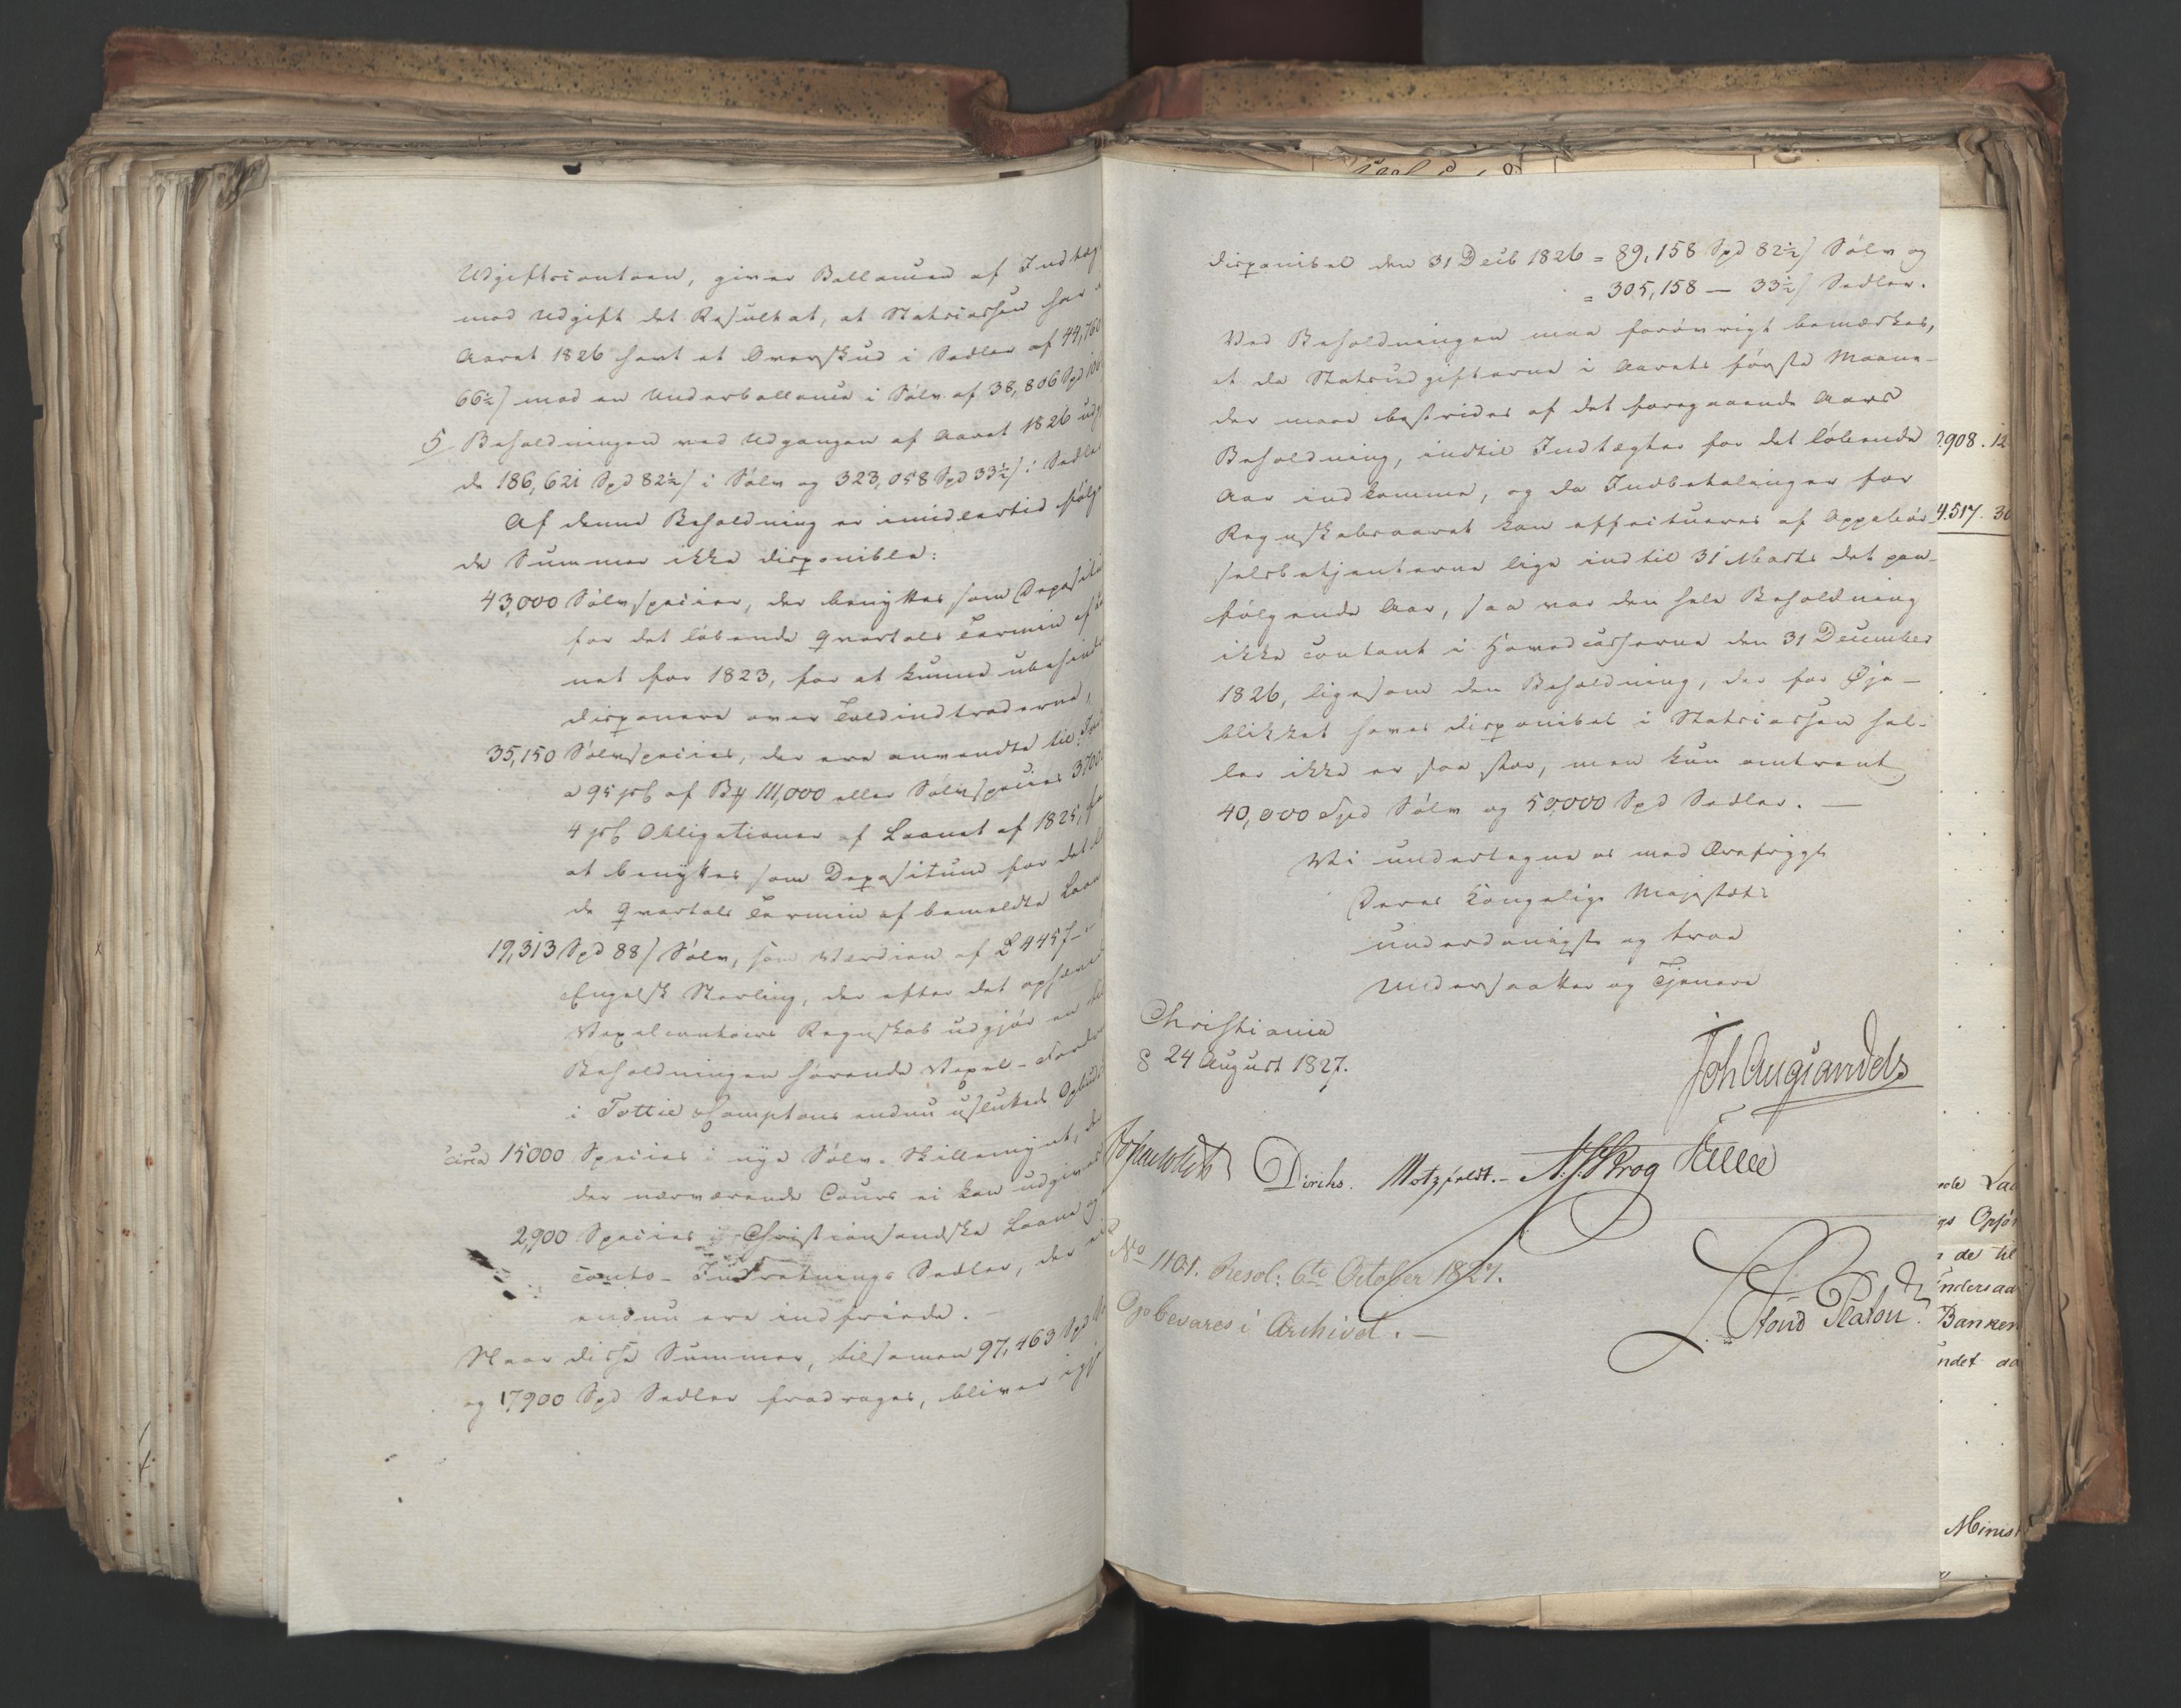 Udgiftscontoen, giver Ballancen af Indtæg
mod Udgift det Resultat, at Statscassen har
Aaret 1826 havt et Overskud i Sedler af 44,760
66½ ß mod en Underballance i Sølv af 38,806 Spd
5 Beholdningen ved Udgangen af Aaret 1826 udg
de 186,621 Spd 82½ ß i Sølv og 323,058 Spd 33½ ß i Sedle
Af denne Beholdning er imidlertid følge
de Summer ikke disponible:
43,000 Sølvspecier, der benyttes som Deposit
for det løbende Qvartals Termin af
net for 1823, for at kunne ubehind
disponere over Toldindtraderne,
35,150 Sølvspecier, der ere anvendte til
a 95 pC af B# 111,000 eller Sølvspecies 3700
4 pC Obligationer af Laanet af 1825, fo
at benyttes som Depositum for det
de Qvartals Termin af bemeldte Laan
19,313 Spd 88 ß Sølv, som Værdien af £ 4457
Engelsk Sterling, der efter det ophæved
Vexelcontoirs Regnskab udgjør en til
Beholdningen hørende Vexel-Fordr
i Tottie & Comptons endnu usluttede Opbuds
circa 15000 Species i nye Sølv-Skillemynt, de
der nærværende Cours ei kan udgives
2,900 Species i Christiansandske Laane og
conto-Indretnings Sedler, der ei
endnu ere indfriede. —
Naar disse Summer, tilsamen 97,463 Spd
og 17900 Spd Sedler fradrages, bliver igj
disponibel den 31 Decb 1826 = 89,158 Spd 82½ ß Sølv og
= 305,158 — 33½ ß Sedler.
Ved Beholdningen maa forøvrigt bemærkes,
at da Statsudgifterne i Aarets første Maane-
der maae bestrides af det foregaaende Aars
Beholdning, indtil Indtægter for det løbende
Aar indkomme, og da Indbetalinger for
Regnskabsaaret kan effectueres af Oppebør-
selsbetjenterne lige indtil 31 Marts det paa-
følgende Aar, saa var den hele Beholdning
ikke contant i Hovedcasserne den 31 December
1826, ligesom den Beholdning, der for Øje-
blikket haves disponibel i Statscassen hel-
ler ikke er saa stor, men kun omtrent
40,000 Spd Sølv og 50,000 Spd Sedler. —
Vi undertegne os med Ærefrygt
Deres Kongelige Majestæts
underdanigste og troe
Undersaatter og Tjenere
Christiania
d 24 August 1827.
Joh Aug Sandels
Diriks. Motzfeldt.- N. J. Krog
No 1101. Resol: 6te October 1827.
Bevares i Archivet. —
.908. 12
4.517. 30
Opfør
de til
Undersaa
Banken
ndet
Minist